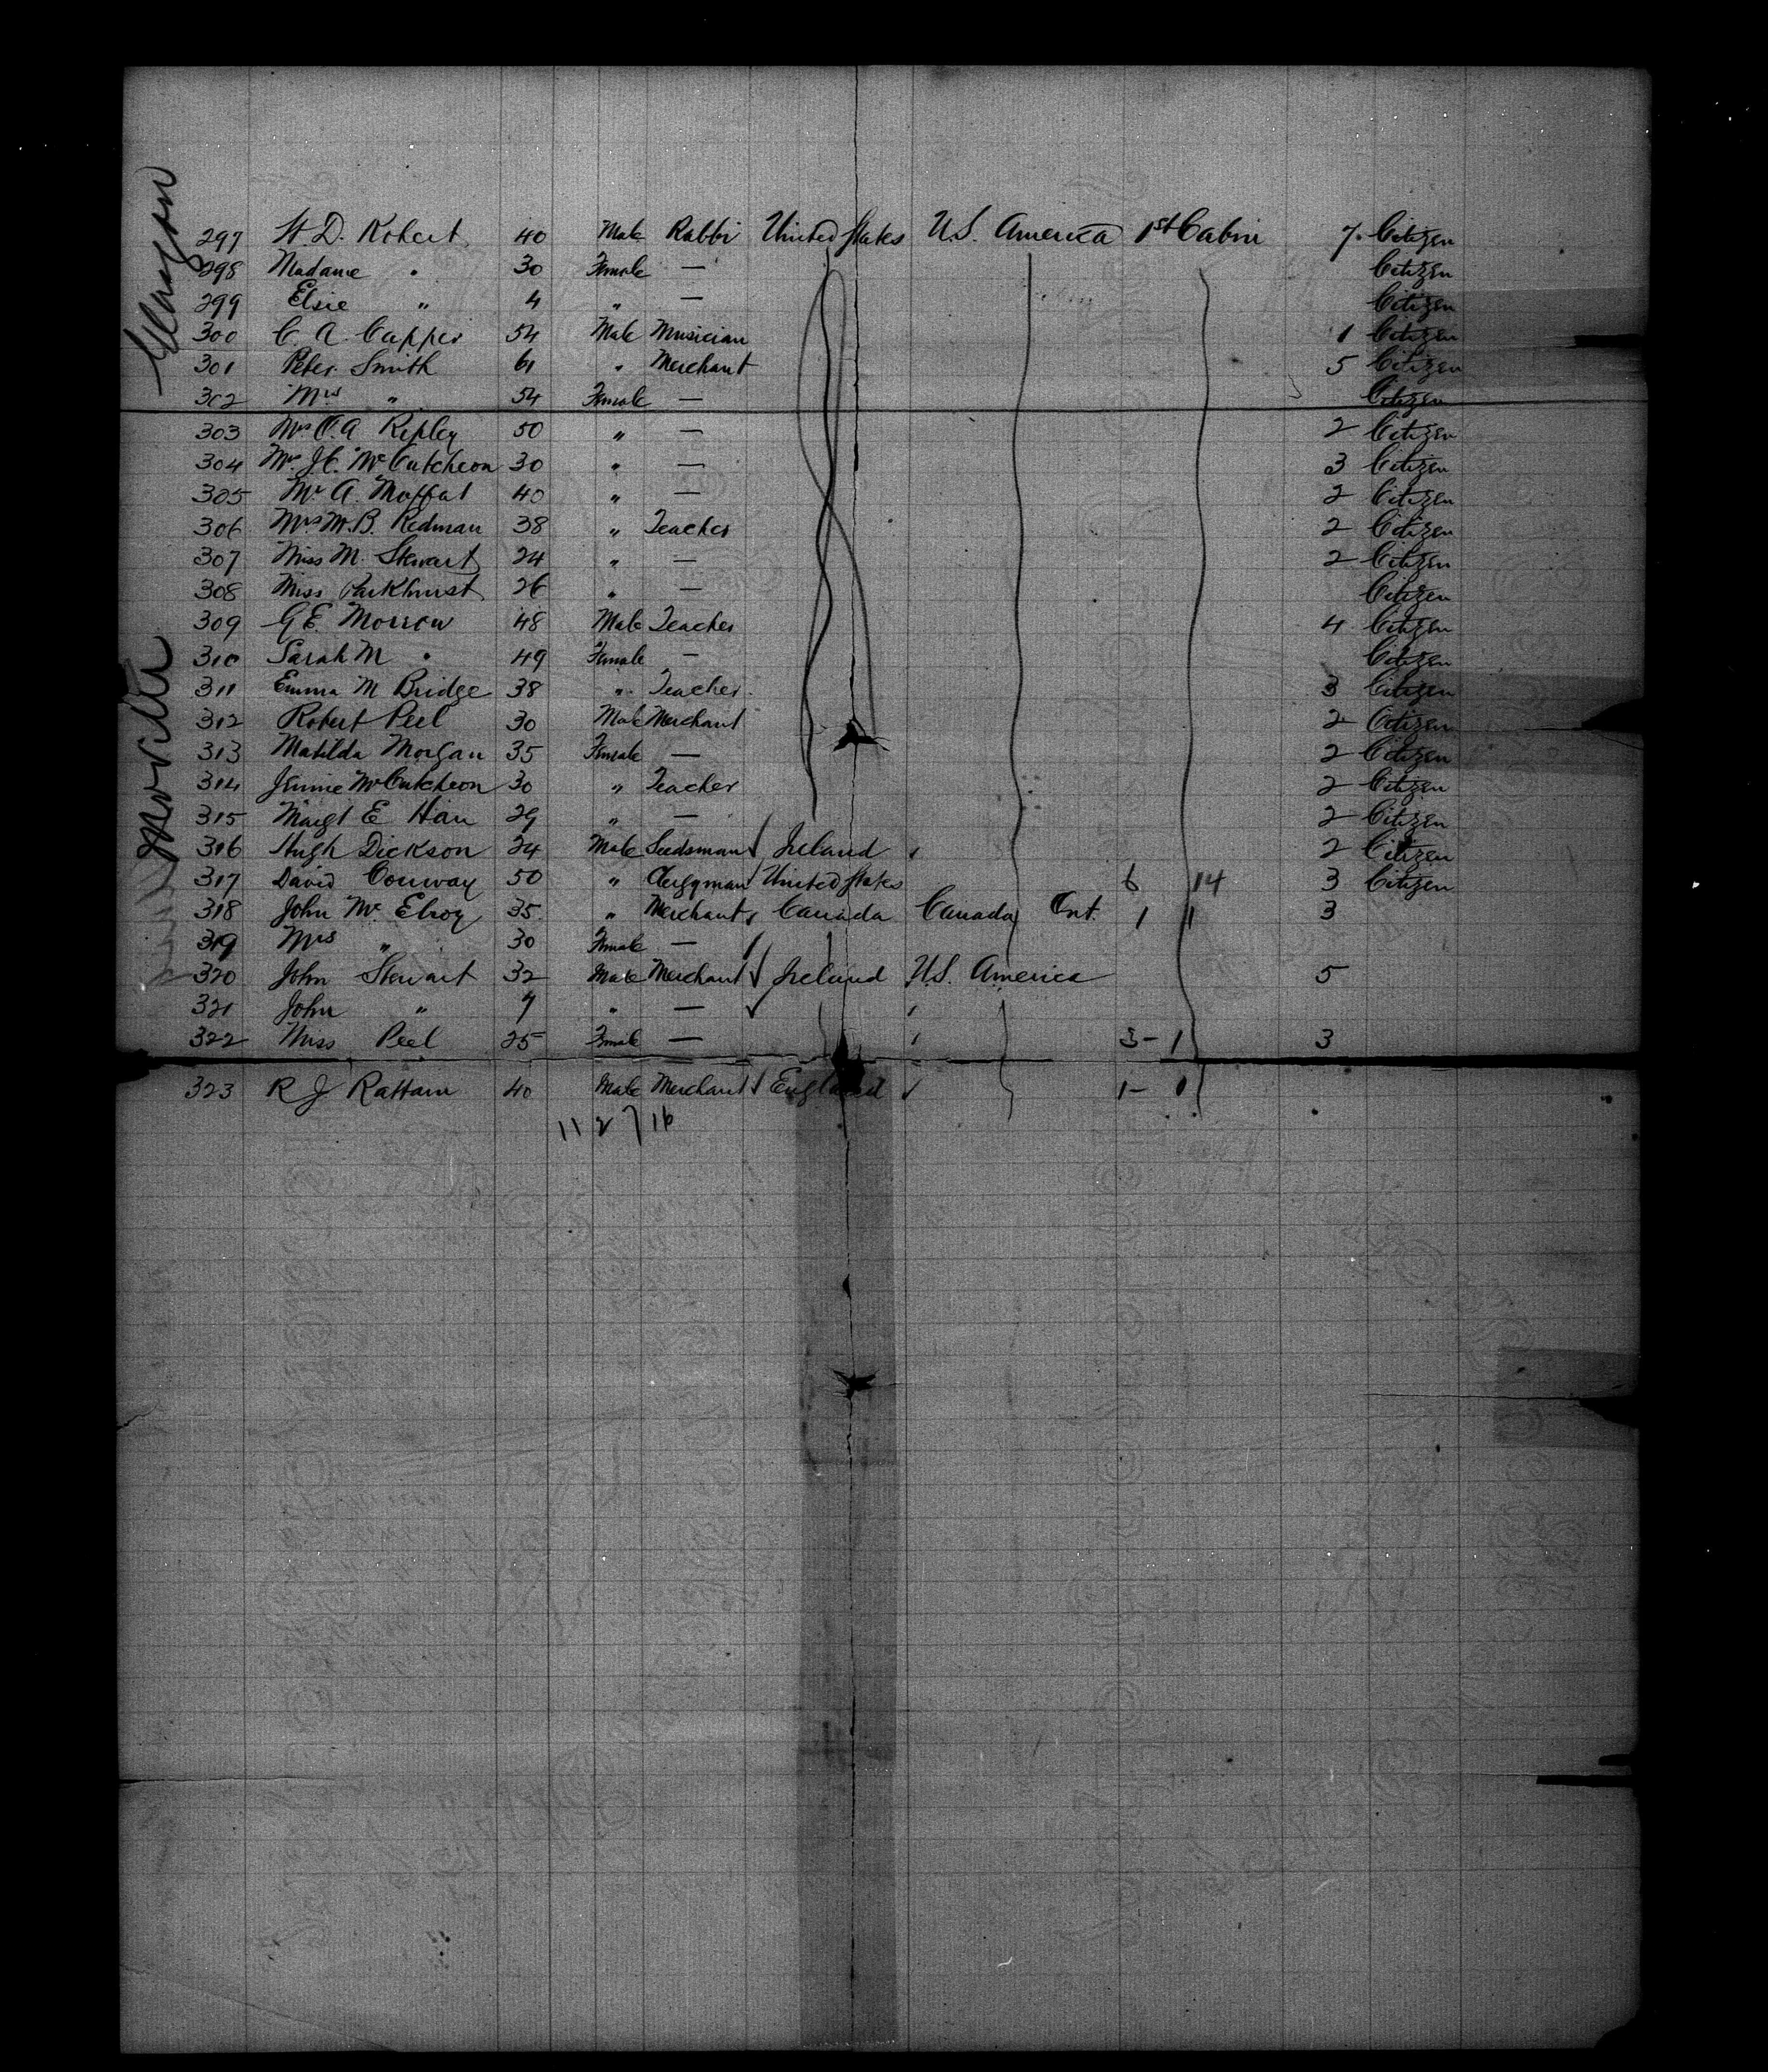 Glasgow
297 H. D. Robert 40 Male Rabbi United States U.S. America 1st Cabin 7. Citizen
298 Madame " 30 Female — Citizen
299 Elsie " 4 " — Citizen
300 C. A. Capper 54 Male Musician 1 Citizen
301 Peter Smith 61 " Merchant 5 Citizen
302 Mrs " 54 Female — Citizen
303 Mrs C. A Ripley 50 " — 2 Citizen
304 Mrs J. C. McCutcheon 30 " — 3 Citizen
305 Mr A. Moffat 40 " — 2 Citizen
306 Mrs M. B. Redman 38 " Teacher 2 Citizen
307 Miss M. Stewart 24 " — 2 Citizen
308 Miss Parkhurst 26 " — Citizen
309 G E. Morrow 48 Male Teacher 4 Citizen
310 Sarah M " 49 Female — Citizen
Moville
311 Emma M Bridge 38 " Teacher 3 Citizen
312 Robert Peel 30 Male Merchant 2 Citizen
313 Matilda Morgan 35 Female — 2 Citizen
314 Jennie McCutcheon 30 " Teacher 2 Citizen
315 Margt E 29 " — 2 Citizen
316 Hugh Dickson 24 Male Seedsman Ireland 2 Citizen
317 David Conway 50 " Clergyman United States 6 14 3 Citizen
318 John McElroy 35 " Merchant Canada Canada Ont. 1 1 3
319 Mrs " 30 Female —
320 John Stewart 32 Male Merchant Ireland U.S. America 5
321 John " 7 " —
322 Miss Peel 25 Female — 3 - 1 3
323 R J Rattam 40 Male Merchant England 1 - 1
11 2 7 16